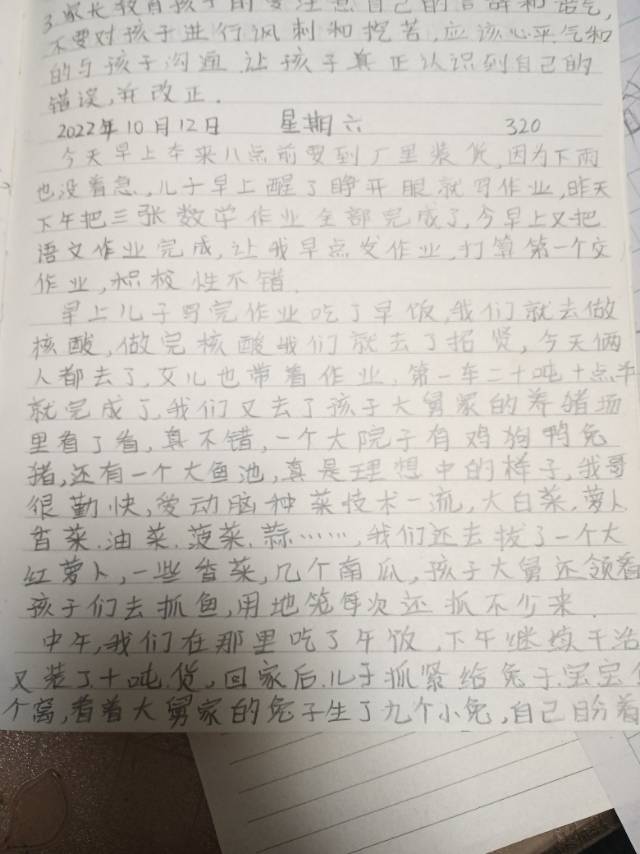 3.家长教育孩子时要注意自己的言辞和语气,
不要对孩子进行讽刺和挖苦,应该心平气和
的与孩子沟通,让孩子真正认识到自己的
错误,并改正.
2022年10月12日 星期六 320
今天早上本来八点前要到厂里装货,因为下雨
也没着急,儿子早上醒了睁开眼就写作业,昨天
下午把三张数学作业全部完成了,今早上又把
语文作业完成,让我早点发作业,打算第一个交
作业,积极性不错.
早上儿子写完作业吃了早饭,我们就去做
核酸,做完核酸我们就去了招贤,今天俩
人都去了,女儿也带着作业,第一车二十吨十点半
就完成了,我们又去了孩子大舅家的养猪场
里看了看,真不错,一个大院子有鸡狗鸭兔
猪,还有一个大鱼池,真是理想中的样子,我哥
很勤快,爱动脑种菜技术一流,大白菜,萝卜
香菜.油菜.菠菜.蒜……,我们还去拔了一个大
红萝卜,一些香菜,几个南瓜,孩子大舅还领着
孩子们去抓鱼,用地笼每次还抓不少来.
中午,我们在那里吃了午饭,下午继续干活
又装了十吨货,回家后,儿子抓紧给兔子宝宝
个窝,看着大舅家的兔子生了九个小兔,自己盼着